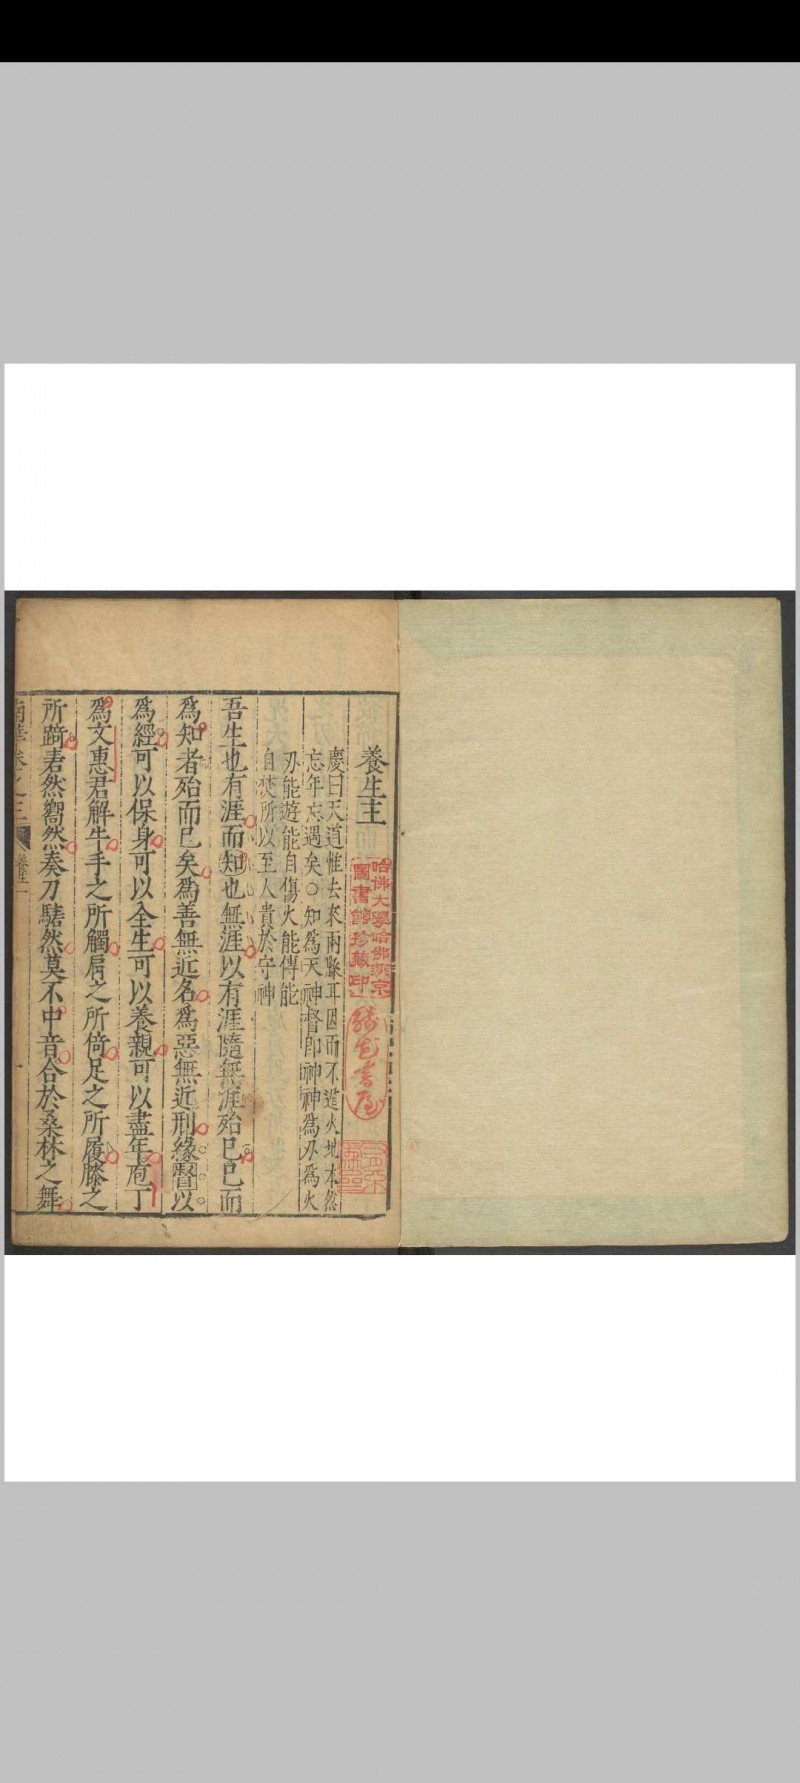 養生主
慶曰天道惟去來兩縣耳因而不遣火地本然
忘年忘遇矣○知為天神督即神神為刃為火
刃能遊能自傷火能傳能
自焚所以至人貴於守神
吾生也有涯而知也無涯以有涯隨無涯殆已已而
為知者殆而已矣為善無近名為惡無近刑緣督以
為經可以保身可以全生可以養親可以盡年庖丁
為文惠君解牛手之所觸肩之所倚足之所履膝之
所踦砉然嚮然奏刀騞然莫不中音合於桑林之舞
南華卷之三
哈佛大學哈佛燕京
圖書館珍藏印